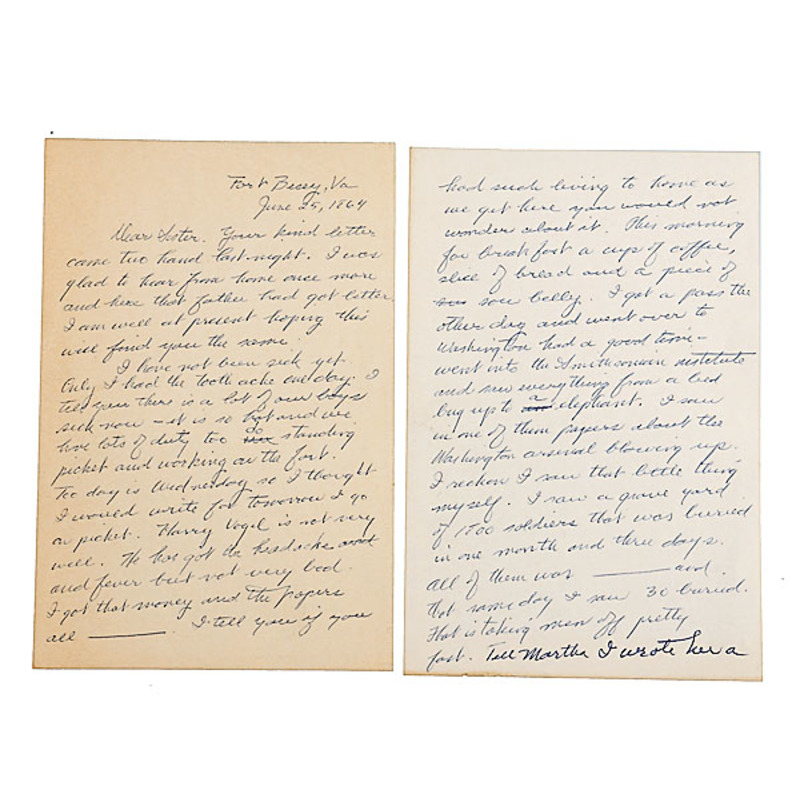 Fort Bessy, Va
June 25, 1864
Dear Sister. Your kind letter
came two hand last-night. I was
glad to hear from home once more
and here that father had got letter.
I am well at present hoping this
will find you the same.
I have not been sick yet.
Only I had the tooth ache one day. I
tell you there is a lot of our boys
sick now - it is so hot and we
have lots of duty too do standing
picket and working on the fort.
Too day is Wednesday so I thought
I would write for tomorrow I go
on picket. Harry Vogel is not very
well. He has got the headache and
and fever but not very bad.
I got that money and the papers
all ———. I tell you if you
had such living to home as
we get here you would not
wonder about it. This morning
for breakfast a cup of coffee,
slice of bread and a piece of
sow belly. I got a pass the
other day and went over to
Washington had a good time -
went into the Smithsonian institute
and saw everything from a bed
bug up to a elephant. I saw
in one of them papers about the
Washington arsenal blowing up.
I reckon I saw that little thing
myself. I saw a grave yard
of 1700 soldiers that was buried
in one month and three days.
All of them was ——— and
that same day I saw 30 buried.
That is taking men off pretty
fast. Tell Martha I wrote her a